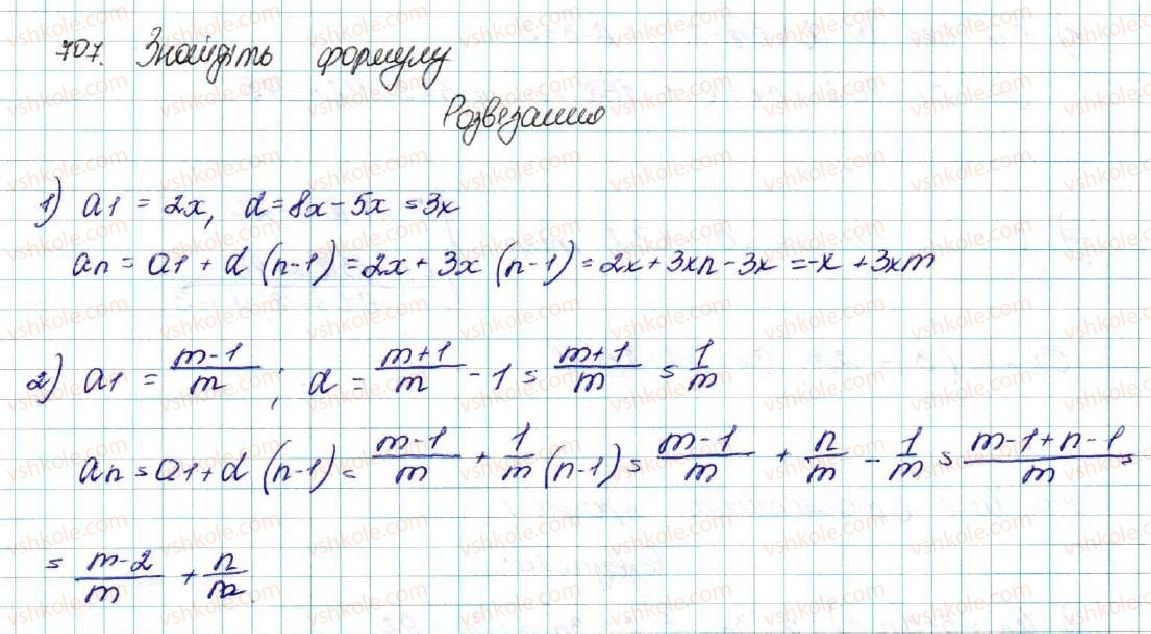 707. Знайдіть формулу
Розвезанно
1) a1 = 2x, d = 8x - 5x = 3x
an = a1 + d (n-1) = 2x + 3x (n-1) = 2x + 3xn - 3x = -x + 3xm
2) a1 = \frac{m-1}{m} ; d = \frac{m+1}{m} - 1 = \frac{m+1}{m} = \frac{1}{m}
an = a1 + d (n-1) = \frac{m-1}{m} + \frac{1}{m} (n-1) = \frac{m-1}{m} + \frac{n}{m} - \frac{1}{m} = \frac{m-1+n-1}{m} =
= \frac{m-2}{m} + \frac{n}{m}
vshkole.com